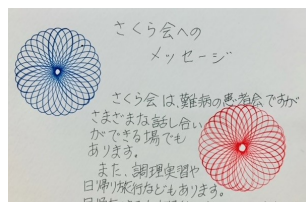 さくら会への
メッセージ
さくら会は、難病の患者会ですが
さまざまな話し合い
ができる場でも
あります。
また、調理実習や
日帰り旅行などもあります。